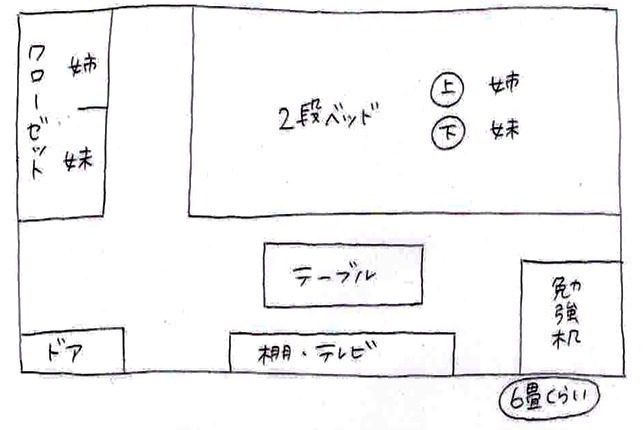 クローゼット
姉
妹
2段ベッド
上 姉
下 妹
テーブル
勉強机
ドア
棚・テレビ
6畳くらい